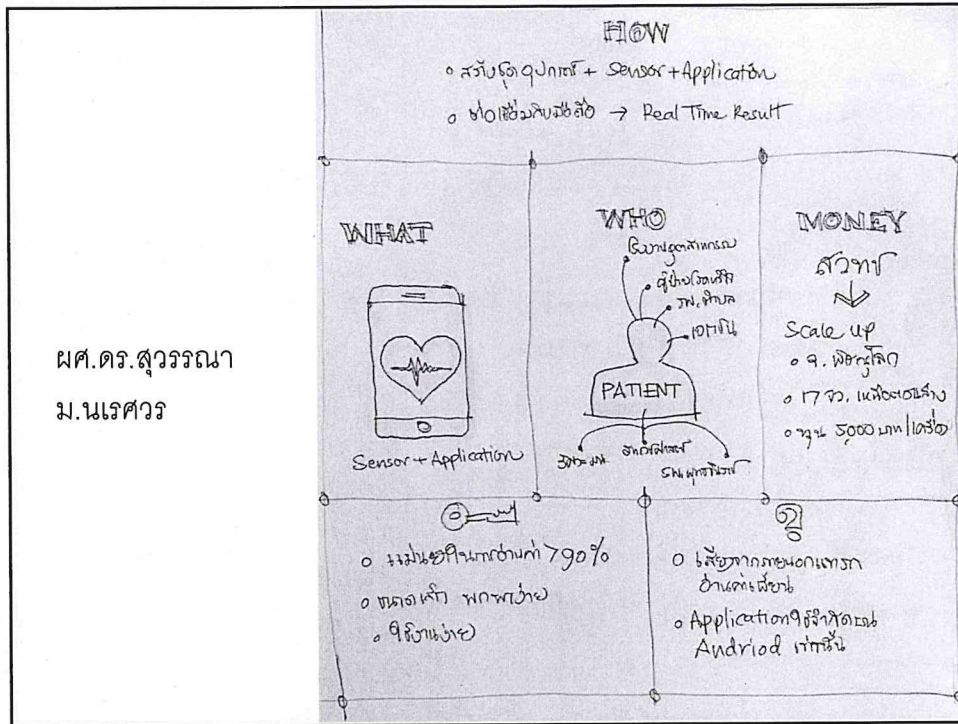 ผศ.ดร.สุวรรณา
ม.นเรศวร
HOW
สร้างชุดอุปกรณ์ + Sensor + Application
ต่อเชื่อมกับมือถือ → Real Time Result
WHAT
Sensor + Application
WHO
โรงงานอุตสาหกรรม
ผู้ป่วยโรคหัวใจ
รพ.ตำบล
เอกชน
PATIENT
รพ.พุทธชินราช
MONEY
สวทช
Scale up
จ. พิษณุโลก
17 จว. เหนือตอนล่าง
ทุน 5,000 บาท/เครื่อง
แม่นยำในการอ่านค่า >90%
ขนาดเล็ก พกพาง่าย
ใช้งานง่าย
เสียงจากภายนอกแทรก
อ่านค่าเพี้ยน
Application ใช้จำกัดบน
Andriod เท่านั้น